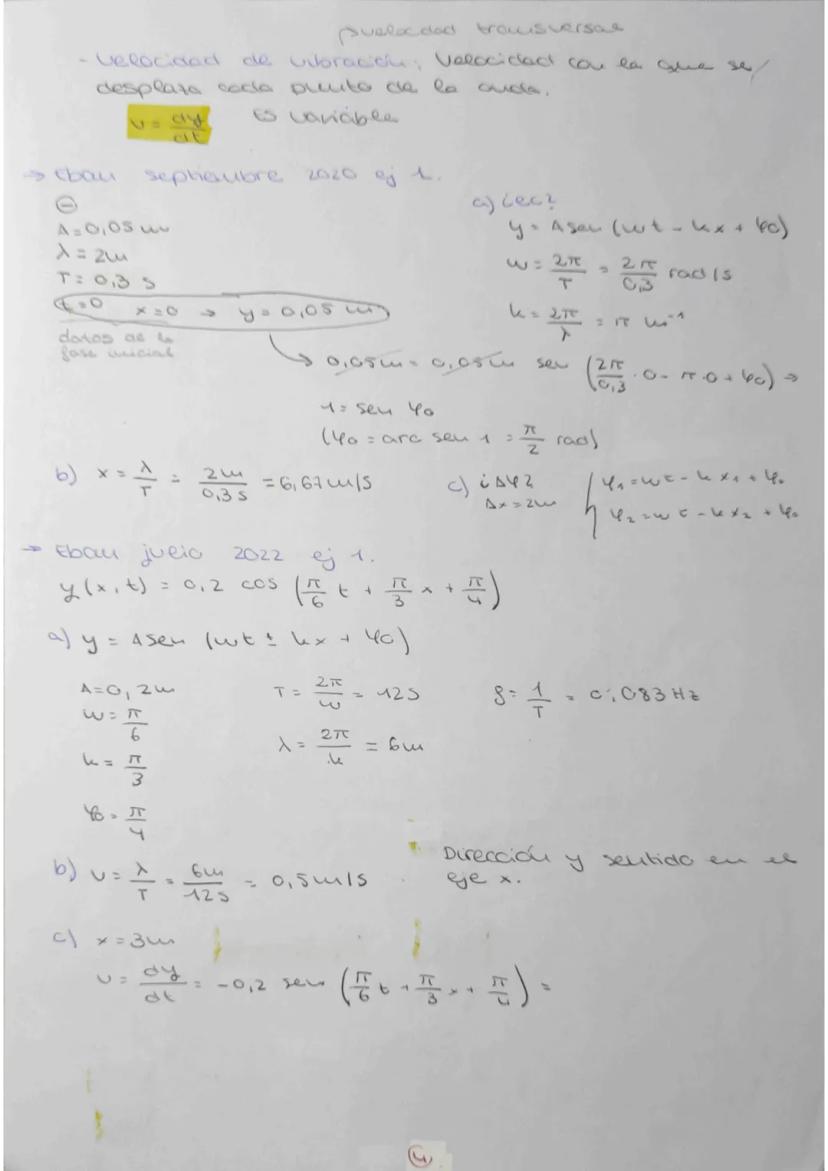 velocidad transversal
- Velocidad de vibración: Velocidad con la que se
desplaza cada punto de la onda.
v = dy/dt Es variable
→ Ebau septiembre 2020 ej 1.
⊖
A = 0,05 m
λ = 2m
T = 0,3 s
t=0 x=0 → y = 0,05 m
datos de la
fase inicial
a)
y = A sen (ωt - kx + φ0)
ω = 2π/T = 2π/0,3 rad/s
k = 2π/λ = π m⁻¹
0,05m = 0,05m sen (2π/0,3 · 0 - π · 0 + φ0) →
1 = sen φ0
(φ0 = arc sen 1 = π/2 rad)
b) x = λ/T = 2m/0,3 s = 6,67 m/s
c) ¿Δφ?
Δx = 2m
φ1 = ωt - kx1 + φ0
φ2 = ωt - kx2 + φ0
→ Ebau julio 2022 ej 1.
y(x,t) = 0,2 cos (π/6 t + π/3 x + π/4)
a) y = A sen (ωt ± kx + φ0)
A = 0,2m
ω = π/6
k = π/3
φ0 = π/4
T = 2π/ω = 12s
λ = 2π/k = 6m
f = 1/T = 0,083 Hz
b) v = λ/T = 6m/12s = 0,5 m/s
Dirección y sentido en el
eje x.
c) x = 3m
v = dy/dt = -0,2 sen (π/6 t + π/3 x + π/4) =
4